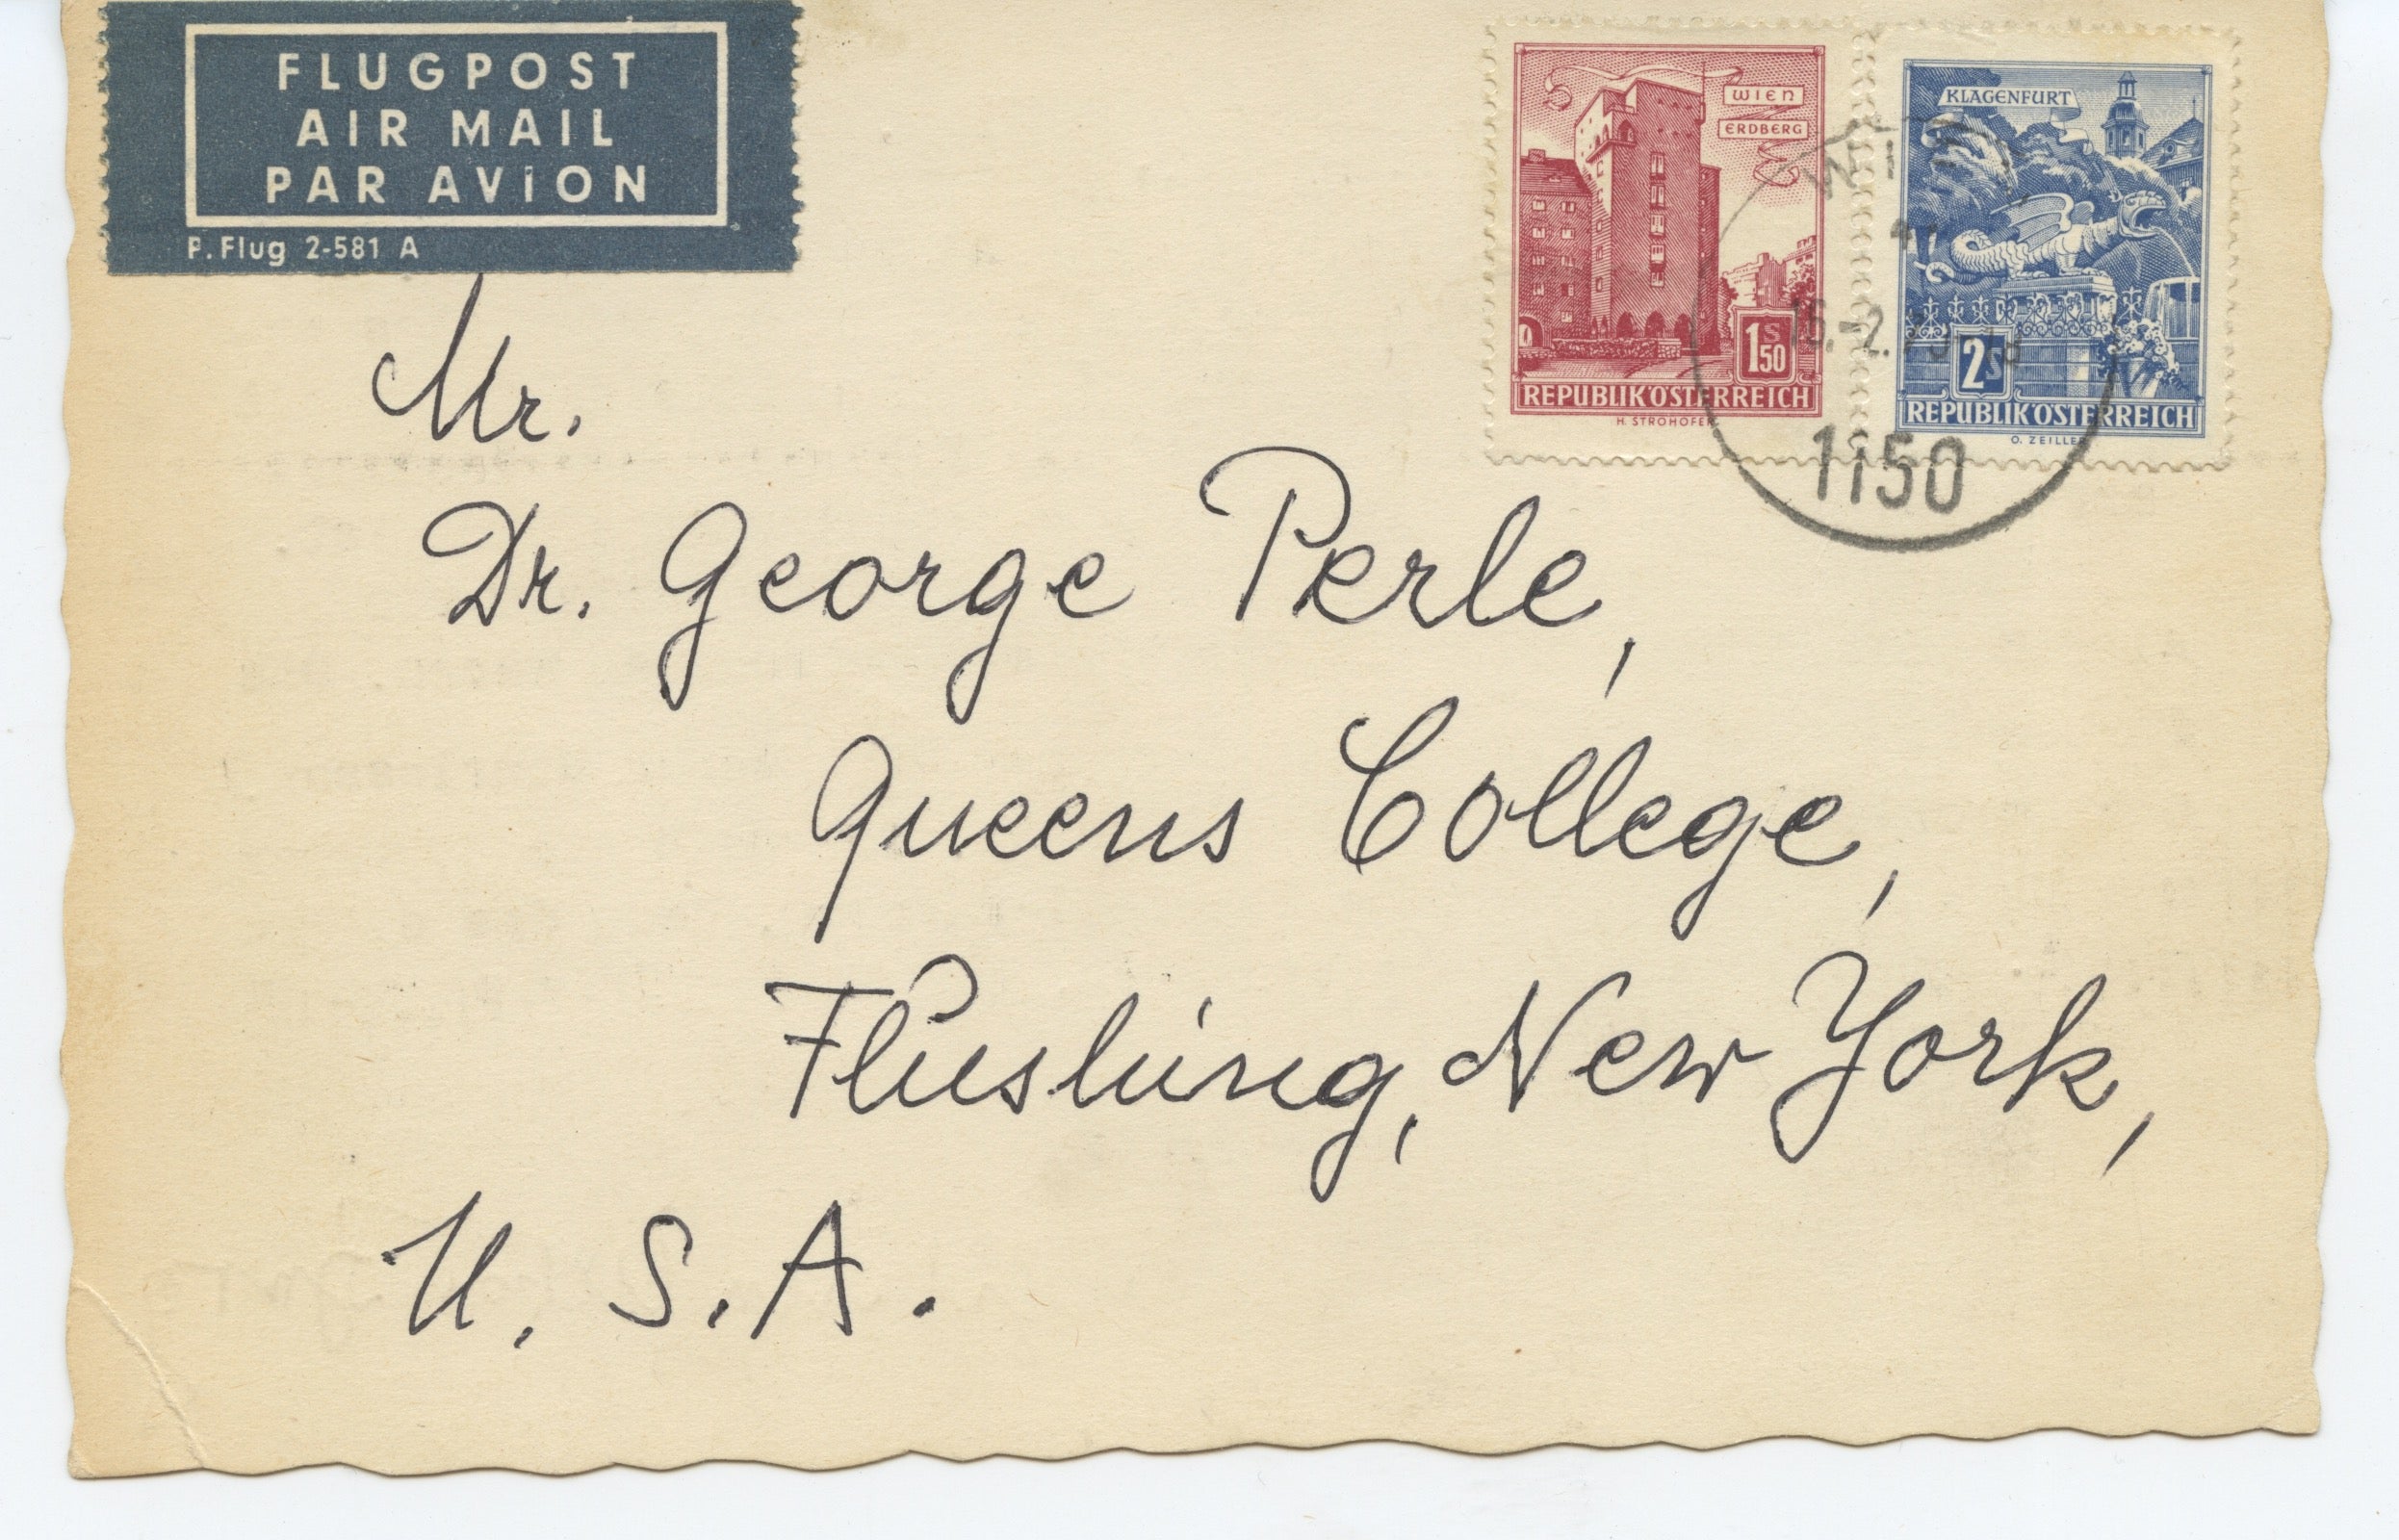 FLUGPOST
AIR MAIL
PAR AVION
P. Flug 2-581 A
WIEN
ERDBERG
1S
50
REPUBLIK ÖSTERREICH
H. STROHOFER
KLAGENFURT
2S
REPUBLIK ÖSTERREICH
O. ZEILLER
WIEN
1150
Mr.
Dr. George Perle,
Queens College,
Flushing, New York,
U. S. A.